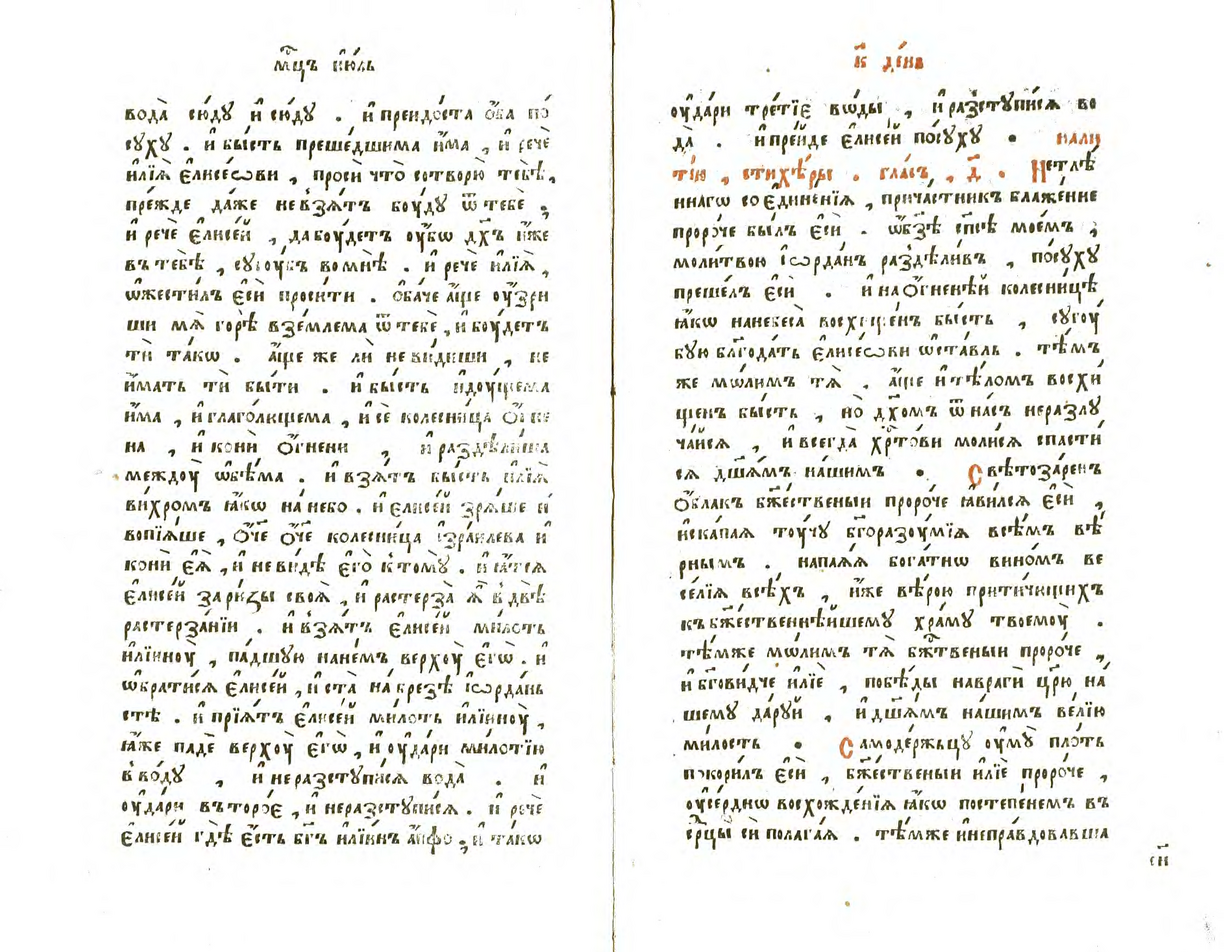 мц҃ъ і҆ю́ль
вода̀ сю́дꙋ и҆ сю́дꙋ . и҆ преидо́ста ѻ҆́ба по́
сꙋхꙋ . и҆ бы́сть преше́дшима и҆́ма , и҆ речѐ
и҆лїѧ̀ є҆лисе́ѡви , просѝ что̀ сотворю̀ тебѣ̀ ,
пре́жде да́же не взѧ́тъ бꙋ́дꙋ ѿ тебє̀ .
и҆ речѐ є҆лисе́й , да бꙋ́детъ ᲂу҆́бѡ дх҃ъ и҆́же
въ тебѣ̀ , сꙋгꙋ́бъ во мнѣ̀ . и҆ речѐ и҆лїѧ̀ ,
ѡ҆жести́лъ є҆сѝ проси́ти . ѻ҆ба́че а҆́ще ᲂу҆́зри
ши мѧ̀ горѣ̀ взе́млема ѿ тебє̀ , и҆ бꙋ́детъ
тѝ та́кѡ . а҆́ще же лѝ не ви́диши , не
и҆́мать тѝ бы́ти . и҆ бы́сть и҆дꙋ́щема
и҆́ма , и҆ глаго́лющема , и҆ сѐ колесни́ца ѻ҆́гне
на , и҆ ко́ни ѻ҆́гнени , и҆ раздѣли́ша
междꙋ̀ ѡ҆бѣ́ма . и҆ взѧ́тъ бы́сть и҆лїѧ̀
ви́хромъ ꙗ҆́кѡ на́ небо . и҆ є҆лисе́й зрѧ́ше и҆
вопїѧ́ше , ѻ҆́ч҃е ѻ҆́ч҃е колесни́ца і҆зра́илева и҆
ко́ни є҆ѧ̀ , и҆ не ви́дѣ є҆го̀ к томꙋ̀ . и҆ ꙗ҆́тсѧ
є҆лисе́й за ри́зы своѧ̀ , и҆ растерза̀ ѧ҆̀ в двѣ̀
растерза́нїи . и҆ взѧ́тъ є҆лисе́й ми́лоть
и҆лїинꙋ̀ , па́дшꙋю на не́мъ верхꙋ̀ є҆гѡ̀ . и҆
ѡ҆брати́сѧ є҆лисе́й , и҆ ста̀ на бре́зѣ і҆ѡрда́нь
стѣ . и҆ прїѧ́тъ є҆лисе́й ми́лоть и҆лїинꙋ̀ ,
ꙗ҆́же падѐ верхꙋ̀ є҆гѡ̀ , и҆ ᲂу҆да́ри ми́лотїю
в во́дꙋ , и҆ не разстꙋпи́сѧ вода̀ . и҆
ᲂу҆да́ри второ́є , и҆ не разстꙋпи́сѧ . и҆ речѐ
є҆лисе́й гдѣ̀ є҆́сть бг҃ъ и҆лїи́нъ а҆пфо̀ , и҆ та́кѡ
к҃ де́нь
ᲂу҆да́ри тре́тїє во́ды , и҆ разстꙋпи́сѧ во
да̀ . и҆ пре́йде є҆лисе́й по́сꙋхꙋ . на ли
ті́ю , стихѣ́ры . гла́съ , д҃ . Нетлѣ́
ннагѡ соєдине́нїѧ , прича́стникъ блаже́нне
проро́че бы́лъ є҆сѝ . ѡ҆ бз҃ѣ сп҃сѣ мое́мъ ,
моли́твою і҆ѡрда́нъ раздѣли́въ , по́сꙋхꙋ
преше́лъ є҆сѝ . и҆ на ѻ҆́гненѣй колесни́цѣ
ꙗ҆́кѡ на небеса̀ восхище́нъ бы́сть , сꙋгꙋ́
бꙋю бл҃года́ть є҆лисе́ѡви ѡ҆ста́вль . тѣ́м
же мо́лимъ тѧ̀ . а҆́ще и҆ тѣ́ломъ восхи
ще́нъ бы́сть , но̀ дх҃омъ ѿ на́съ неразлꙋ
ча́йсѧ , и҆ всегда̀ хр҃то́ви моли́сѧ спасти́
сѧ дш҃а́мъ на́шимъ . Свѣтоза́ренъ
ѻ҆́блакъ бж҃е́ственыи проро́че ꙗ҆ви́лсѧ є҆сѝ ,
и҆скапа́ѧ тꙋ́чꙋ бг҃оразꙋ́мїѧ всѣ́мъ вѣ́
рнымъ . напаѧ́ѧ бога́тнѡ вино́мъ ве
се́лїѧ всѣ́хъ , и҆́же вѣ́рою притичю́щихъ
къ бж҃е́ственнѣйшемꙋ хра́мꙋ твоемꙋ̀ .
тѣ́мже мо́лимъ тѧ̀ бж҃твеныи проро́че ,
и҆ бг҃ови́дче и҆лїѐ , побѣ́ды на врагѝ цр҃ю̀ на́
шемꙋ да́рꙋй , и҆ дш҃а́мъ на́шимъ ве́лїю
ми́лость . Самоде́ржьцꙋ ᲂу҆мꙋ̀ пло́ть
покори́лъ є҆сѝ , бж҃е́ственыи и҆лїѐ проро́че ,
ᲂу҆се́рднѡ восхожде́нїѧ ꙗ҆́кѡ постепене́мъ въ
ср҃цы си́ полага́ѧ . тѣ́мже и҆ непра́вдовавша
сн҃